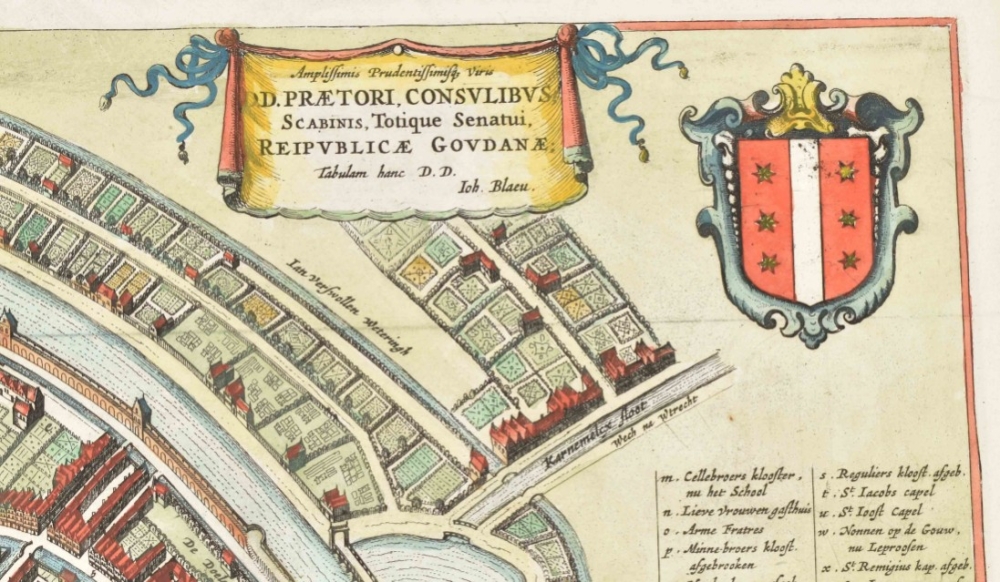 Amplissimis Prudentissimisq; Viris
DD. PRÆTORI, CONSVLIBVS,
SCABINIS, Totique Senatui,
REIPVBLICÆ GOVDANÆ;
Tabulam hanc D.D.
Ioh. Blaeu.
Ian Verswollen Weteringh
Karnemelcx sloot
Wech na Wtrecht
De Doel
m. Cellebroers klooster,
nu het School
n. Lieve Vrouwen gasthuis
o. Arme Fratres
p. Minne-broers kloost.
afgebrooken
s. Reguliers kloost. afgeb.
t. St. Iacobs capel
u. St. Ioost Capel
w. Nonnen op de Gouw,
nu Leproosen
x. St. Remigius kap. afgeb.